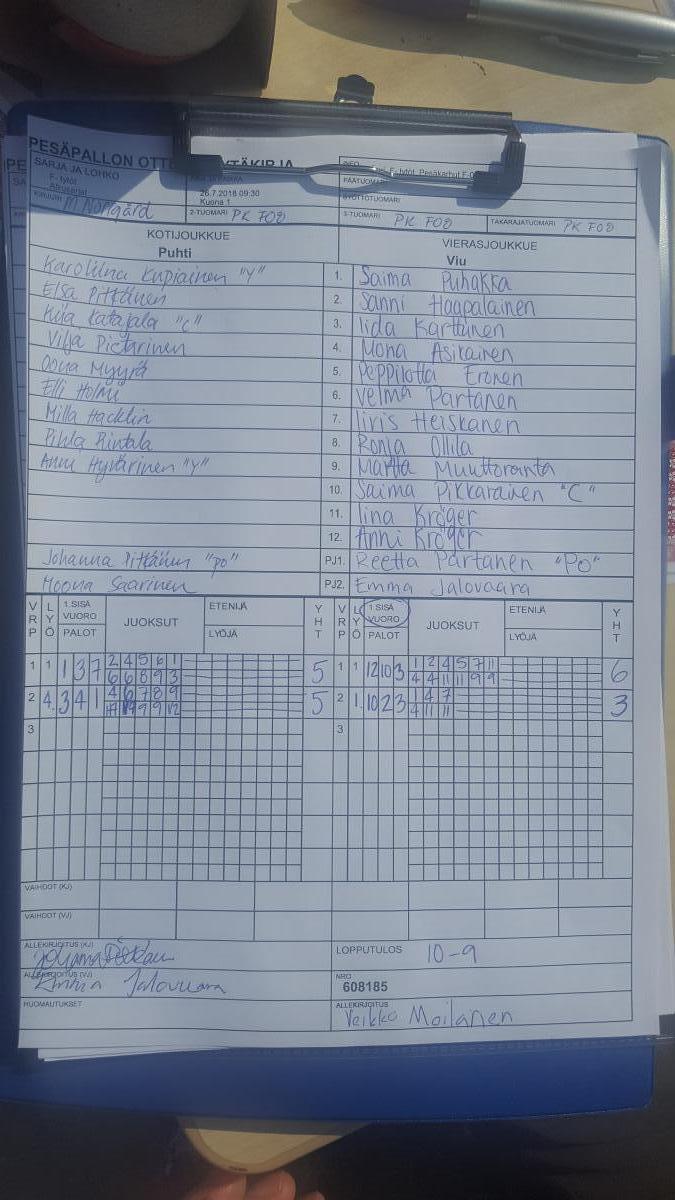 PESÄPALLON OTTE
SARJA JA LOHKO
F- tytöt
26.7.2018 09:30
Kuona 1
M Norrgård
2-TUOMARI PK F08
3-TUOMARI PK F08
TAKARAJATUOMARI PK F08
KOTIJOUKKUE
Puhti
VIERASJOUKKUE
Viu
Karoliina Kupiainen "Y" 1. Saima Puhakka
Elsa Pitkänen 2. Sanni Haapalainen
Kiia Katajala "C" 3. Iida Karttunen
Vilja Pietarinen 4. Mona Asikainen
Oona Myyrä 5. Peppilotta Eronen
Elli Holmi 6. Velma Partanen
Milla Hacklin 7. Iiris Heiskanen
Pihla Rintala 8. Ronja Ollila
Anni Hyvärinen "Y" 9. Martta Muuttoranta
10. Saima Pikkarainen "C"
11. Iina Kröger
12. Anni Kröger
Johanna Pitkänen "po" PJ1. Reetta Partanen "Po"
Noona Saarinen PJ2. Emma Jalovaara
VRP LYÖ 1.SISÄ VUORO PALOT JUOKSUT ETENIJÄ LYÖJÄ YHT VRP LYÖ 1.SISÄ VUORO PALOT JUOKSUT ETENIJÄ LYÖJÄ YHT
1 1 1 3 7 2 4 5 6 1 5 1 1 12 10 3 1 2 4 5 7 11 6
6 6 8 9 3 4 4 11 11 9 9
2 4. 3 4 1 4 6 7 8 9 5 2 1. 10 2 3 1 4 7 3
9 9 12 4 11 11
3 3
VAIHDOT (KJ)
VAIHDOT (VJ)
ALLEKIRJOITUS (KJ)
LOPPUTULOS 10-9
ALLEKIRJOITUS (VJ) Emma Jalovaara
NRO
608185
HUOMAUTUKSET
ALLEKIRJOITUS
Veikko Moilanen